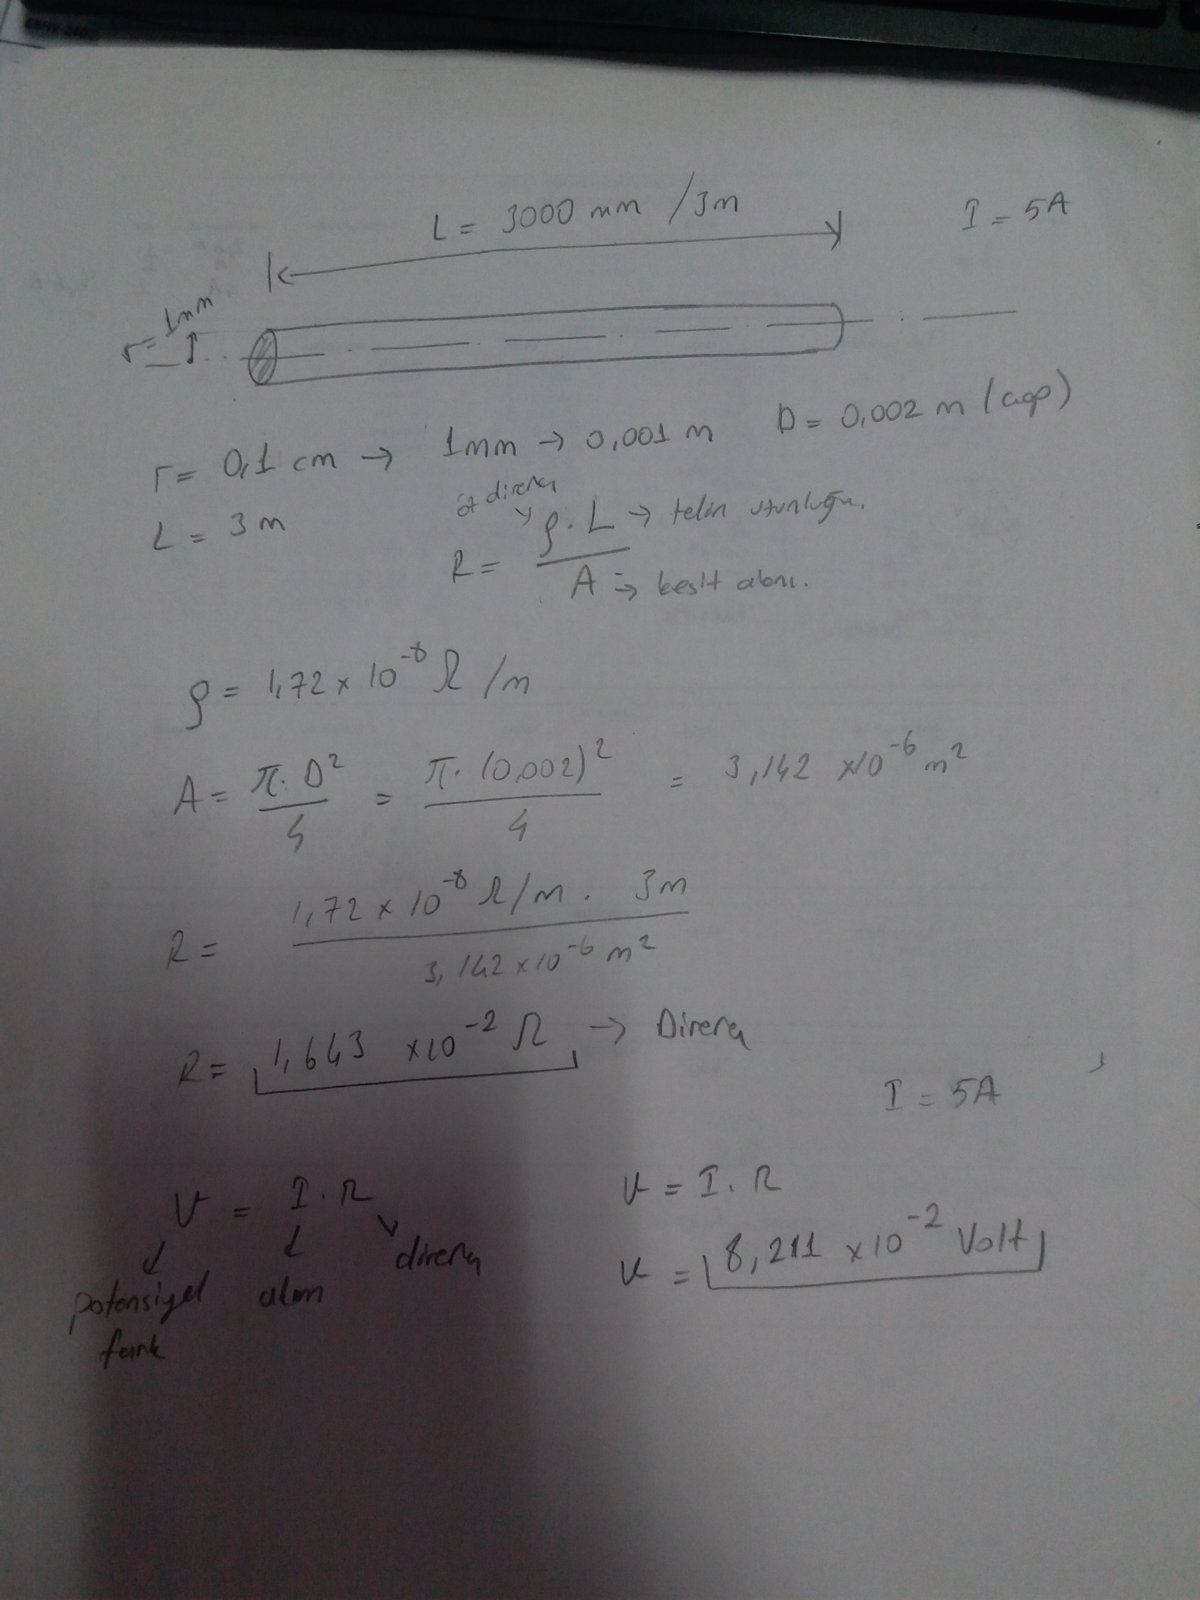 L = 3000 mm / 3m
I = 5A
r = 1mm
r = 0,1 cm → 1mm → 0,001 m D = 0,002 m (çap)
L = 3 m
öz direnç
R = ρ . L → telin uzunluğu.
A → kesit alanı.
ρ = 1,72 × 10⁻⁸ Ω /m
A = π . D² / 4 = π . (0,002)² / 4 = 3,142 × 10⁻⁶ m²
R = 1,72 × 10⁻⁸ Ω/m . 3m
3,142 × 10⁻⁶ m²
R = 1,643 × 10⁻² Ω → Direnç
I = 5A
V = I . R
potansiyel fark
akım
direnç
V = I . R
V = 8,211 × 10⁻² Volt